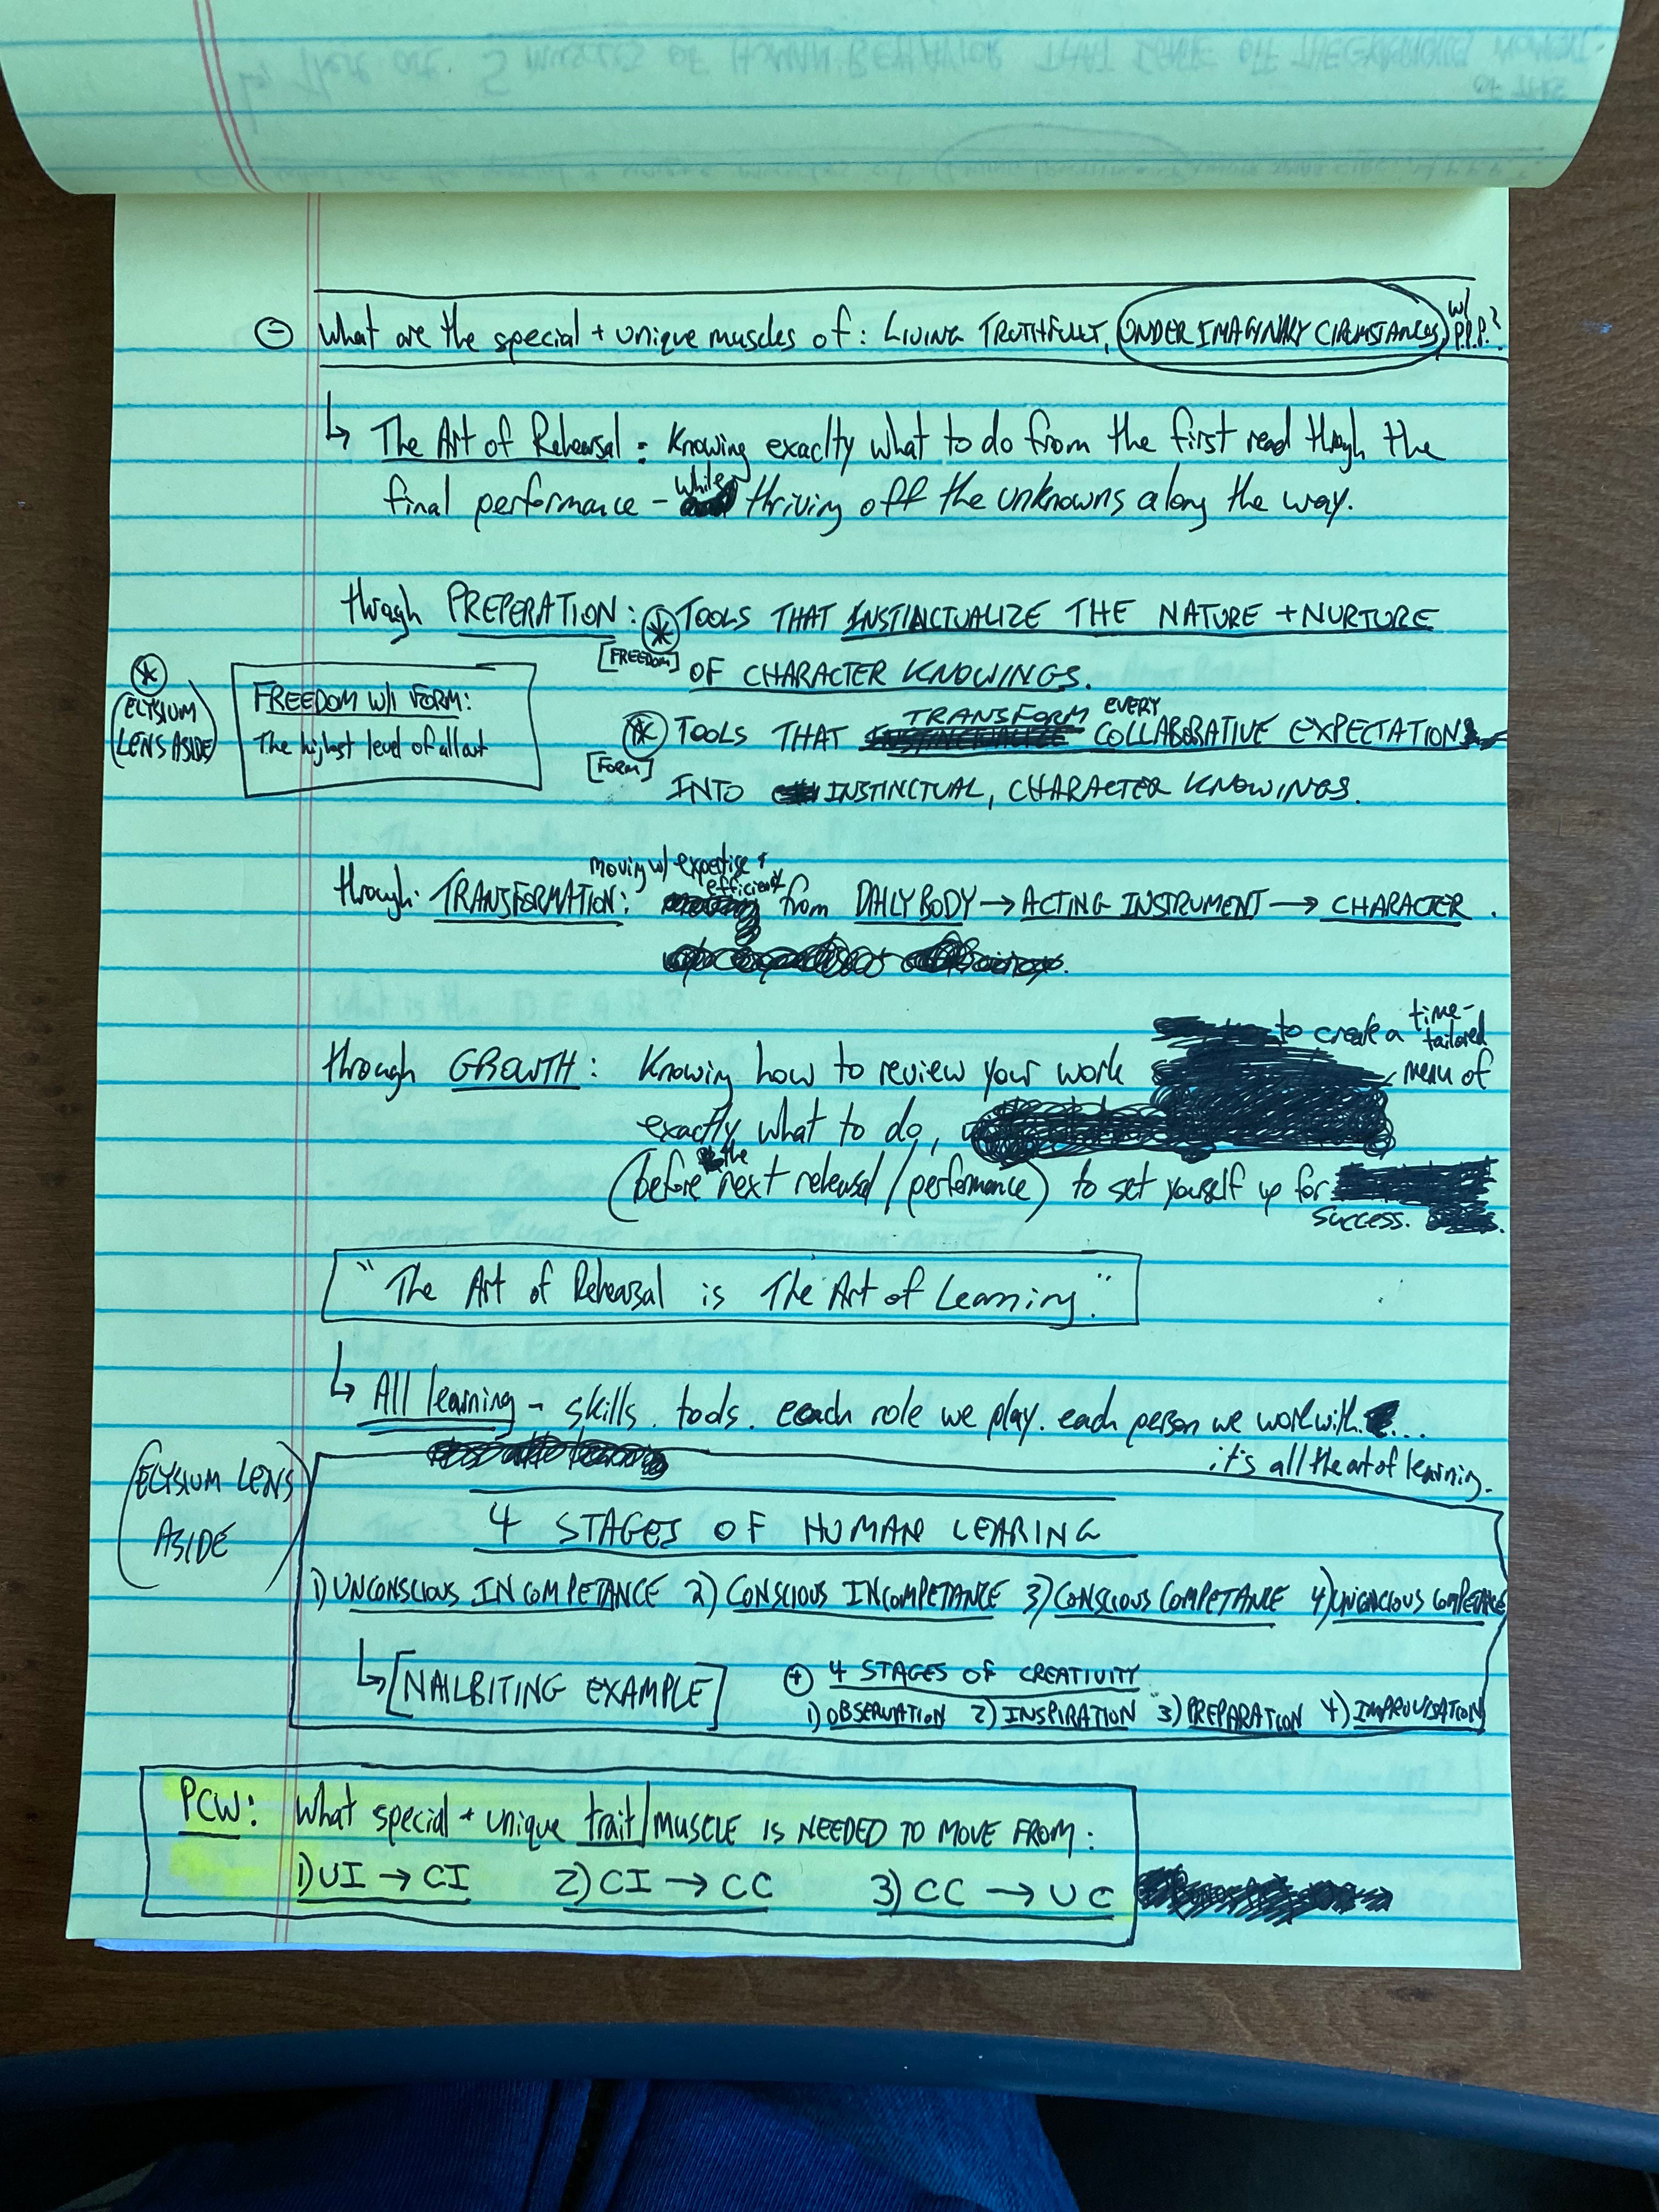 ⊖ What are the special + unique muscles of: LIVING TRUTHFULLY, UNDER IMAGINARY CIRCUMSTANCES w/ P.P.P.?
↳ The Art of Rehearsal: Knowing exaclty what to do from the first read though the
final performance - while thriving off the unknowns along the way.
through PREPERATION: * TOOLS THAT INSTINCTUALIZE THE NATURE + NURTURE
[FREEDOM] OF CHARACTER KNOWINGS.
* (ELYSIUM LENS ASIDE)
FREEDOM W/I FORM:
The highest level of all art
* TOOLS THAT TRANSFORM EVERY COLLABORATIVE EXPECTATION
[FORM] INTO INSTINCTUAL, CHARACTER KNOWINGS.
through: TRANSFORMATION: moving w/ expertise + efficiency from DAILY BODY → ACTING INSTRUMENT → CHARACTER.
through GROWTH: Knowing how to review your work to create a time-tailored menu of
exactly what to do,
(before the next rehersal/performance) to set yourself up for
success.
"The Art of Rehearsal is The Art of Learning."
↳ All learning - skills. tools. each role we play. each person we work with...
it's all the art of learning.
(ELYSIUM LENS
ASIDE)
4 STAGES OF HUMAN LEARING
1) UNCONSCIOUS INCOMPETANCE 2) CONSCIOUS INCOMPETANCE 3) CONSCIOUS COMPETANCE 4)
↳ [NAILBITING EXAMPLE]
⊕ 4 STAGES OF CREATIVITY
1) OBSERVATION 2) INSPIRATION 3) PREPARATION 4) IMPROVISATION
PCW: What special + unique trait/MUSCLE IS NEEDED TO MOVE FROM:
1) UI → CI 2) CI → CC 3) CC → UC